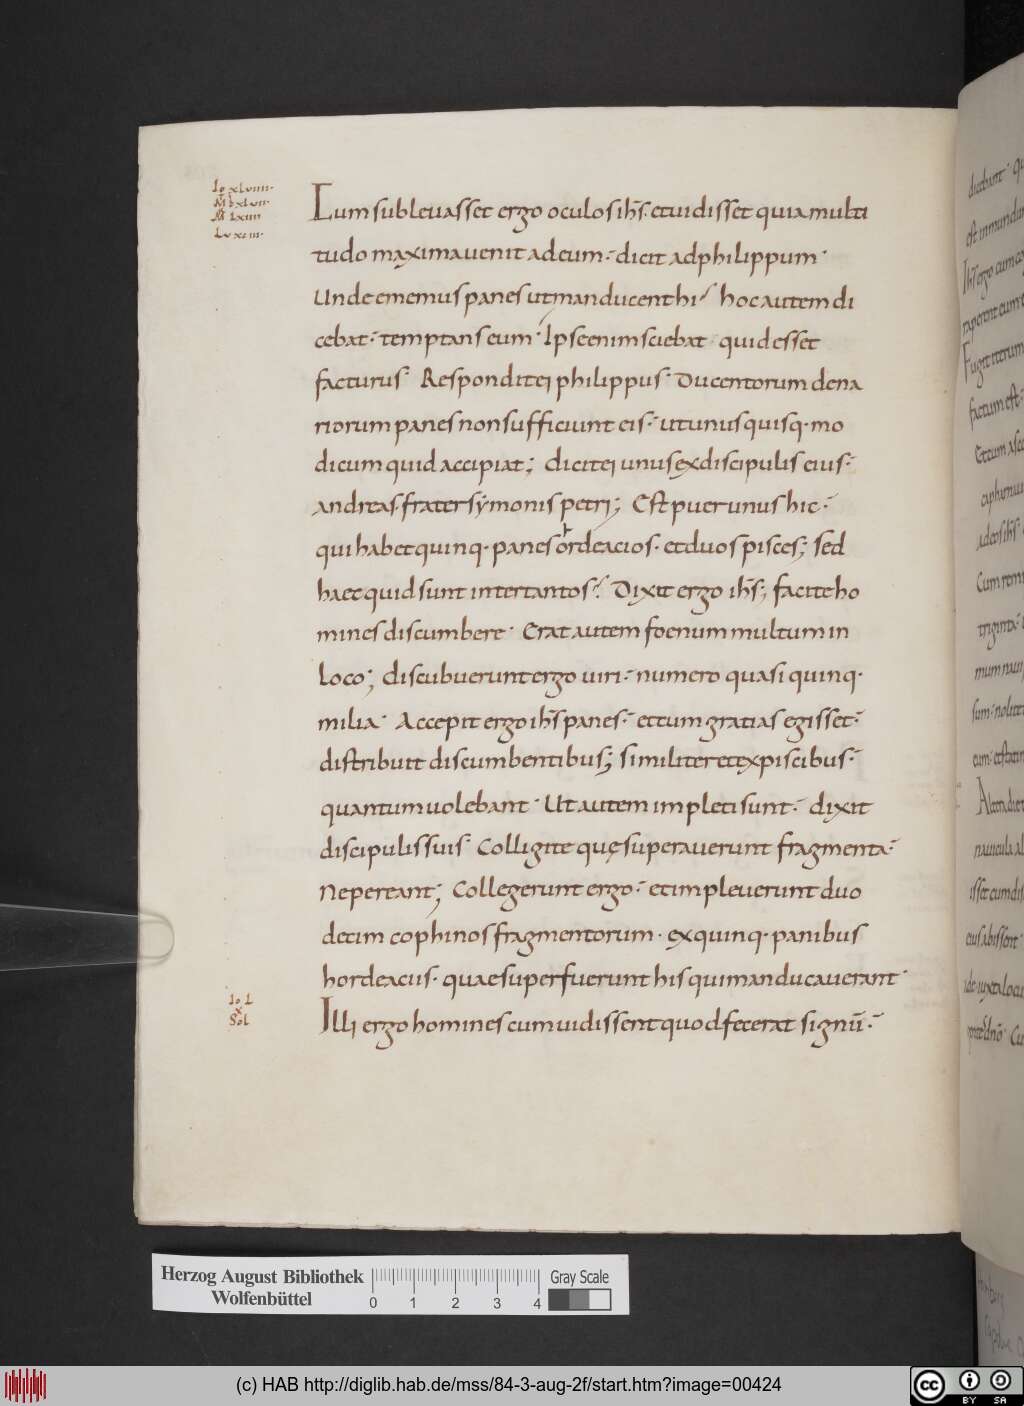 Io xlviiii·
M̄ cxlvii·
M̄ lxiiii
Lu xciii·
Cum subleuasset ergo oculos ih̄s· et uidisset quia multi
tudo maxima uenit ad eum· dicit ad philippum·
Unde ememus panes ut manducent hi? hoc autem di
cebat· temptans eum· Ipse enim sciebat quid esset
facturus· Respondit ei philippus· Ducentorum dena
riorum panes non sufficiunt eis· ut unusquisq· mo
dicum quid accipiat; dicit ei unus ex discipulis eius·
andreas· frater symonis petri; Est puer unus hic·
qui habet quinq· panes ordeacios· et duos pisces; sed
haec quid sunt inter tantos? Dixit ergo ih̄s; facite ho
mines discumbere· Erat autem foenum multum in
loco; discubuerunt ergo uiri· numero quasi quinq·
milia· Accepit ergo ih̄s panes· et cum gratias egisset·
distribuit discumbentibus; similiter et ex piscibus·
quantum uolebant· Ut autem impleti sunt· dixit
discipulis suis· Colligite quę superauerunt fragmenta·
Ne pereant; Collegerunt ergo· et impleuerunt duo
decim cophinos fragmentorum· ex quinq· panibus
hordeacus· quae superfuerunt his qui manducauerant·
Io L
x
Sol
Illi ergo homines cum uidissent quod fecerat signū·
Herzog August Bibliothek
Wolfenbüttel
0 1 2 3 4
Gray Scale
(c) HAB http://diglib.hab.de/mss/84-3-aug-2f/start.htm?image=00424
cc BY SA